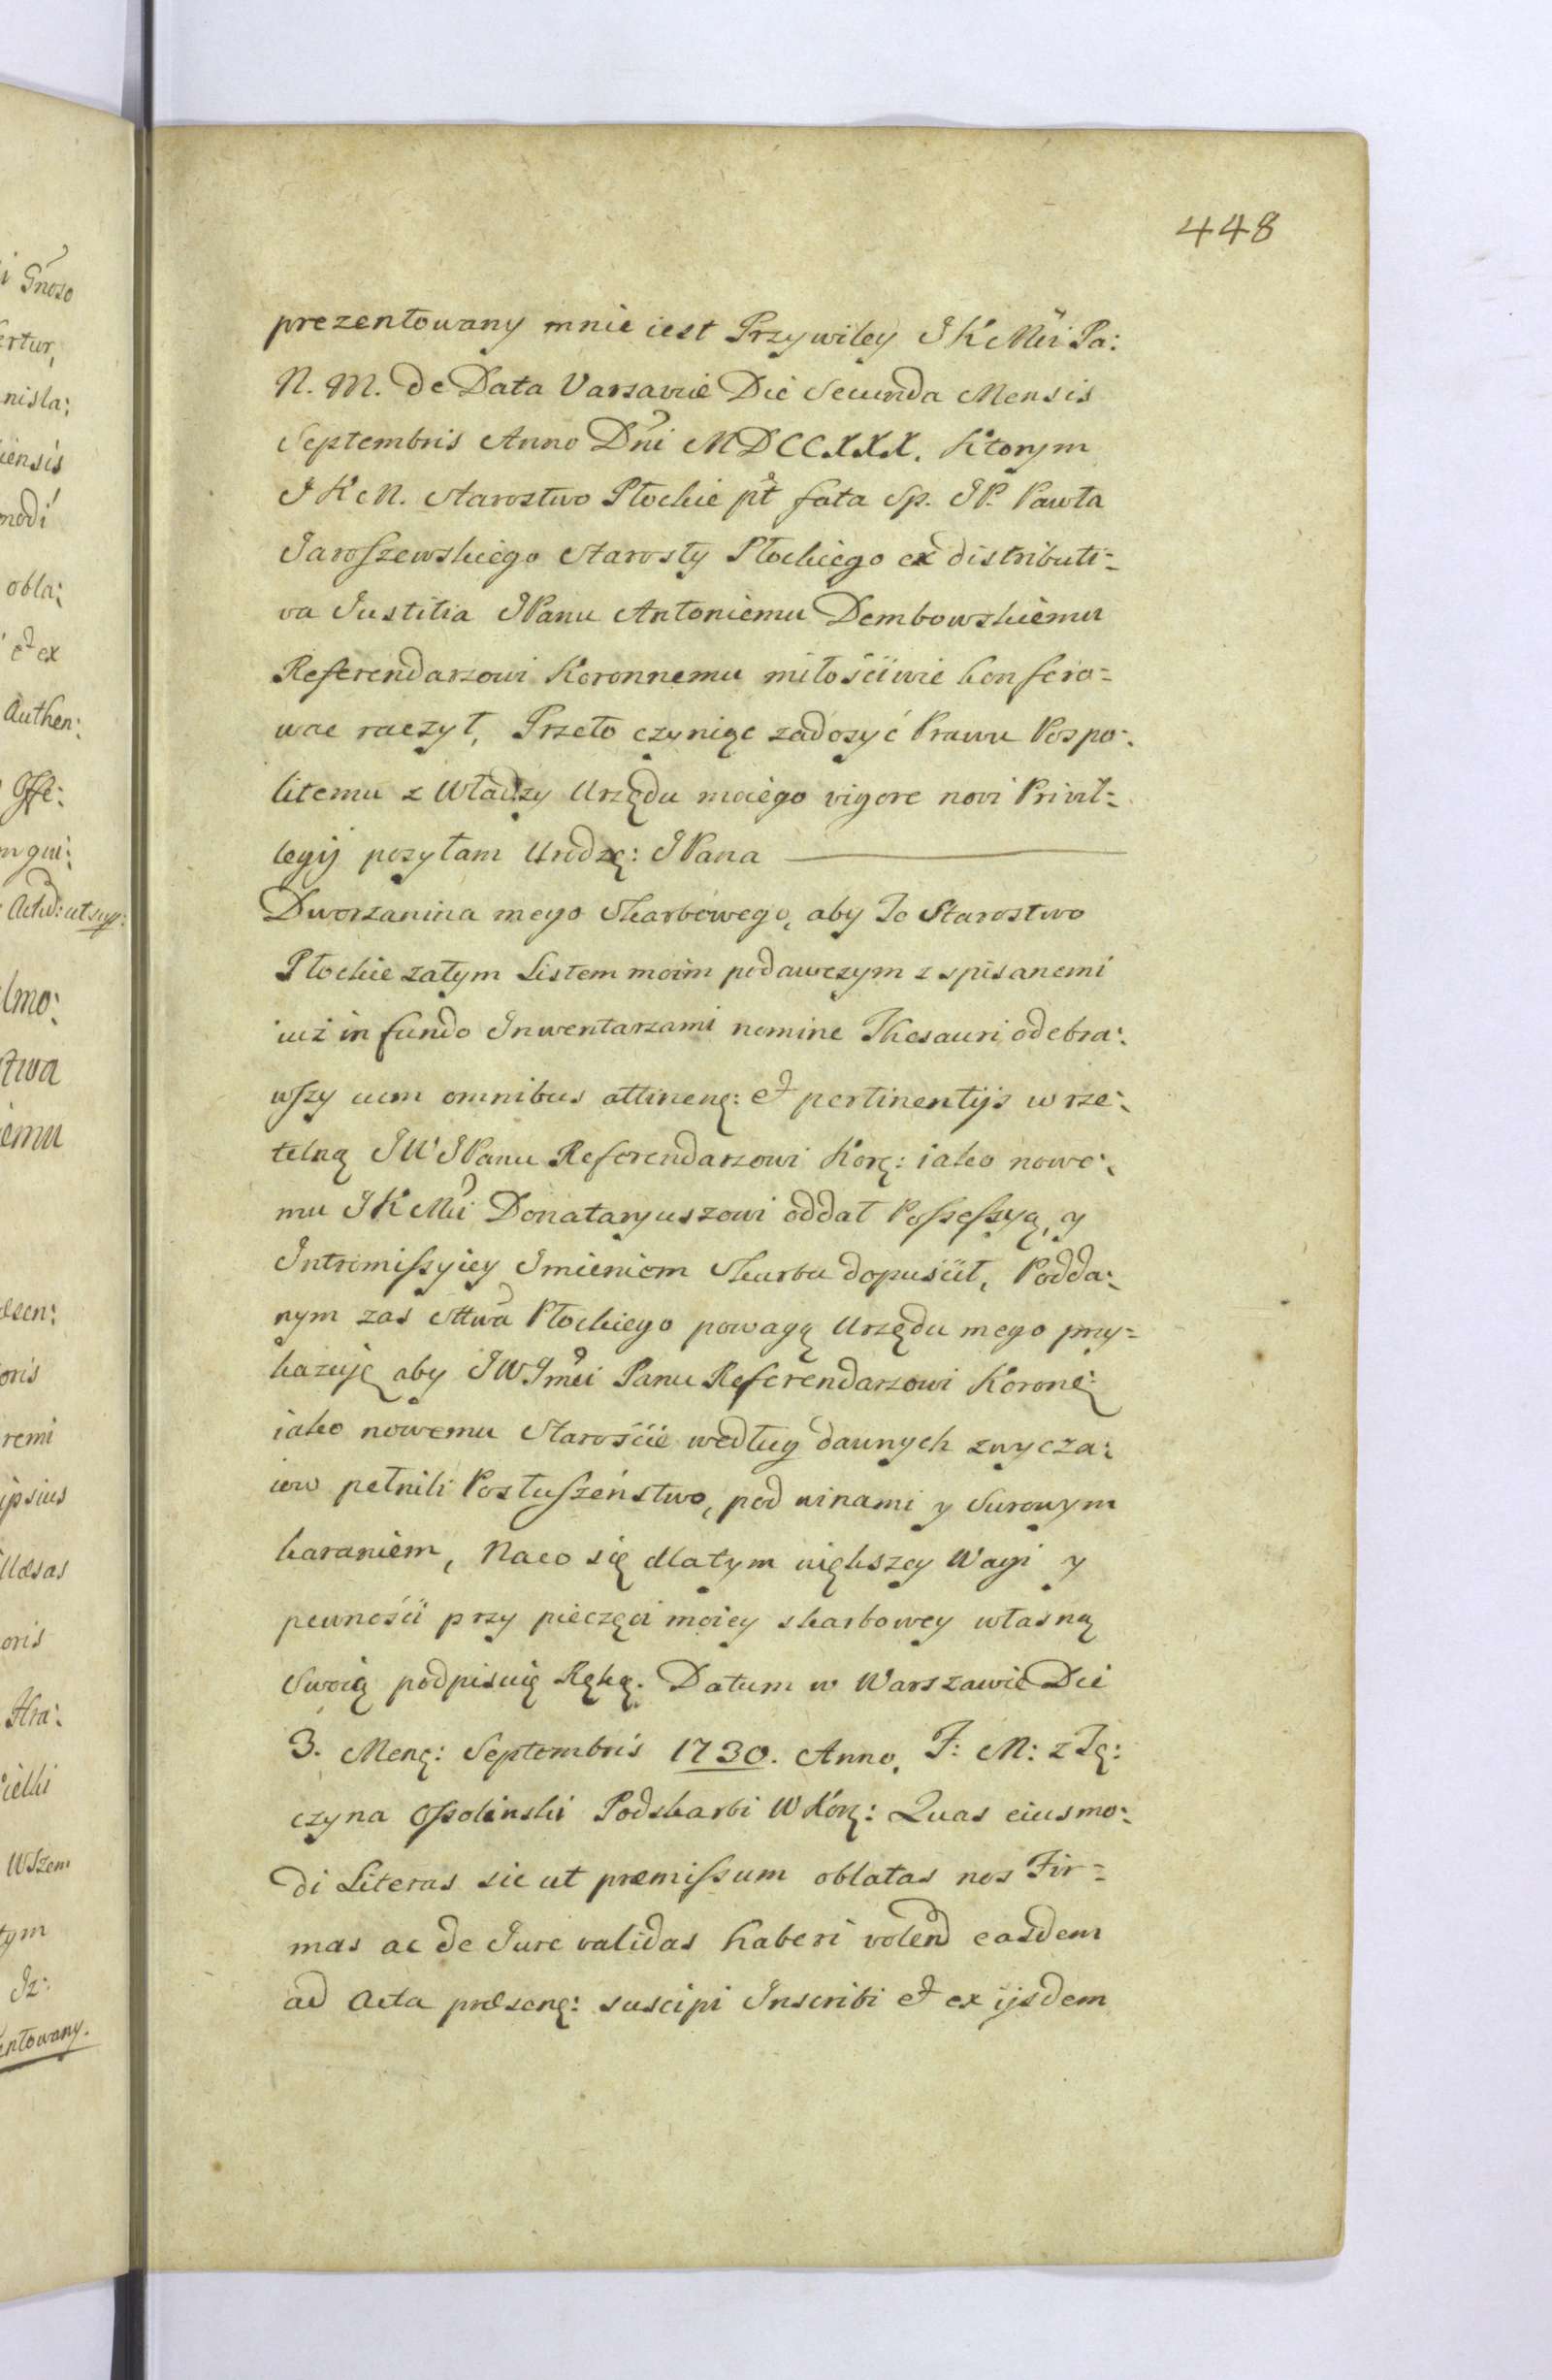 448
prezentowany mnie iest Przywiley JKMci Pa:
N. M. de Data Varsaviæ Die Secunda Mensis
Septembris Anno Dni MDCCXXX. Ktorym
JKM. Starostwo Płockie pt fata Sp. JP. Pawła
Jaroszewskiego Starosty Płockiego ex distributi=
va Justitia JPanu Antoniemu Dembowskiemu
Referendarzowi Koronnemu miłościwie konfero=
wac raczył, Przeto czyniąc zadosyć Prawu Pospo:
litemu z Władzy Urzędu moiego vigore novi Privil=
legij posyłam Urodzę: JPana
Dworzanina mego Skarbowego, aby To Starostwo
Płockie zatym Listem moim podawczym z spisanemi
iuż in fundo Inwentarzami nomine Thesauri odebra:
wszy cum omnibus attineną: et pertinentijs w rze:
telną JWJPanu Referendarzowi Korę: iako nowe:
mu JKMci Donataryuszowi oddał Possessyą, y
Intromissyiey Imieniem Skarbu dopuścił, Podda:
nym zas Sttwa Płockiego powagą Urzędu mego przy=
kazuię aby JWJmci Panu Referendarzowi Koronę:
iako nowemu Starościе według dawnych zwycza:
iow pełnili Posłuszeństwo, pod winami y Surowym
karaniem, Naco się dlatym większey Wagi y
pewności przy pieczęci moiey skarbowey własną
Swoią podpisuię Ręką. Datum w Warszawie Die
3. Menę: Septembris 1730. Anno. F: M: z Tę:
czyna Ossolinski Podskarbi W Korę: Quas eiusmo:
di Literas sic ut præmissum oblatas nos Fir=
mas ac de Jure validas haberi volend easdem
ad Acta præsenę: suscipi Inscribi et ex ijsdem